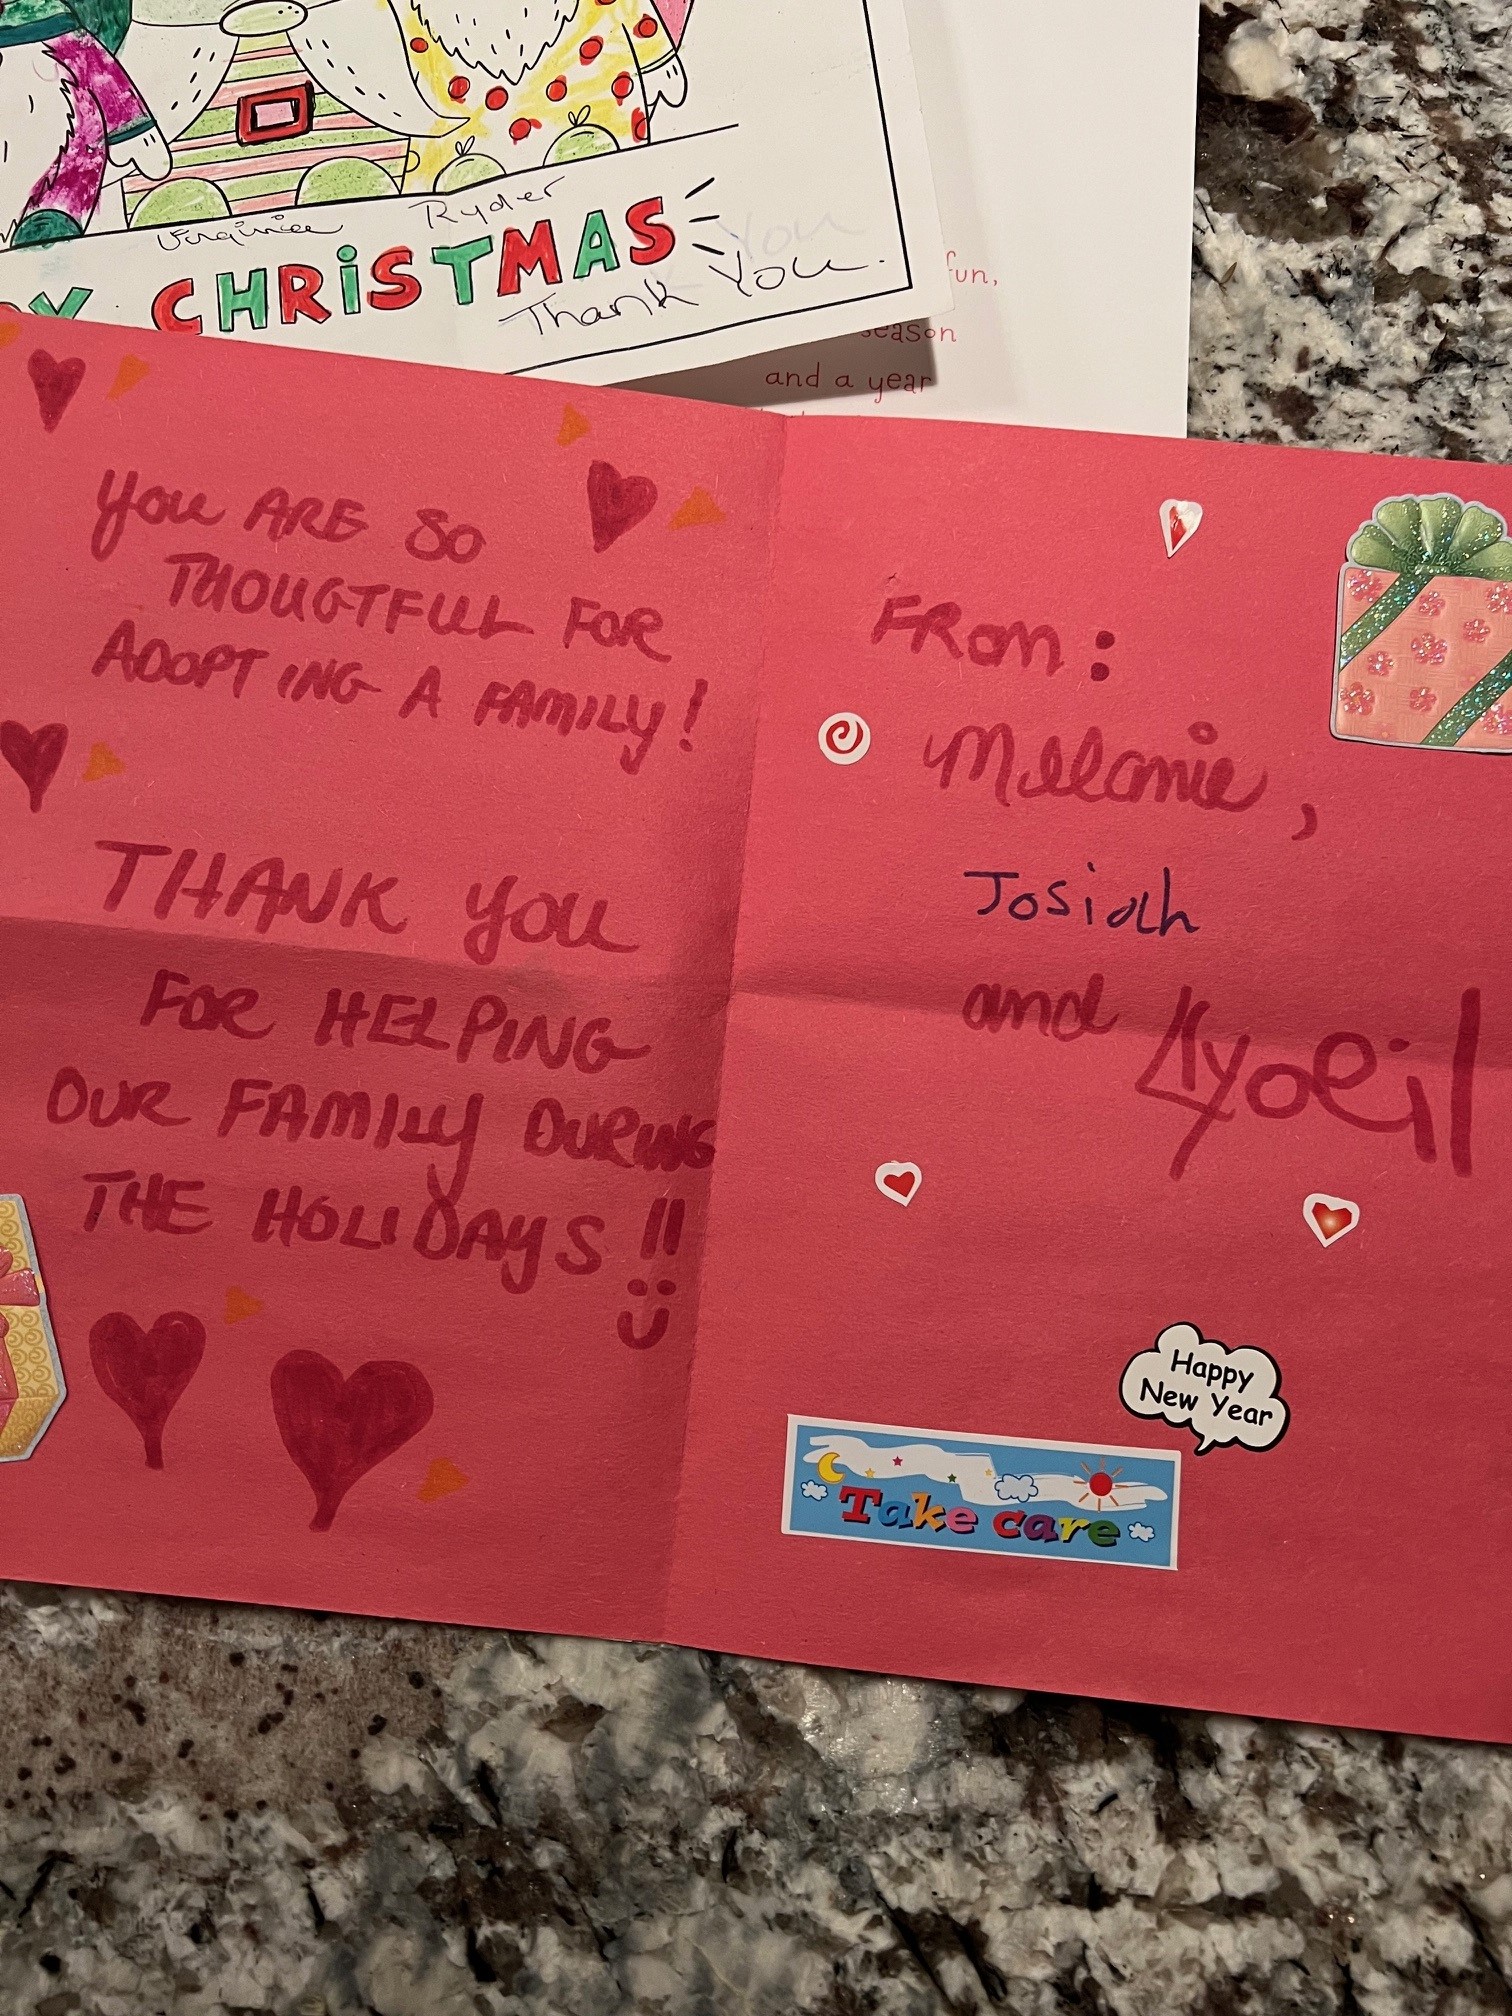 Virginia Ryder
CHRISTMAS
Thank You.
You
fun,
season
and a year
You ARE SO
THOUGTFUL FOR
ADOPTING A FAMILY!
THANK YOU
FOR HELPING
OUR FAMILY DURING
THE HOLIDAYS !!
FROM:
Melanie,
Josiah
and
Happy
New Year
Take care